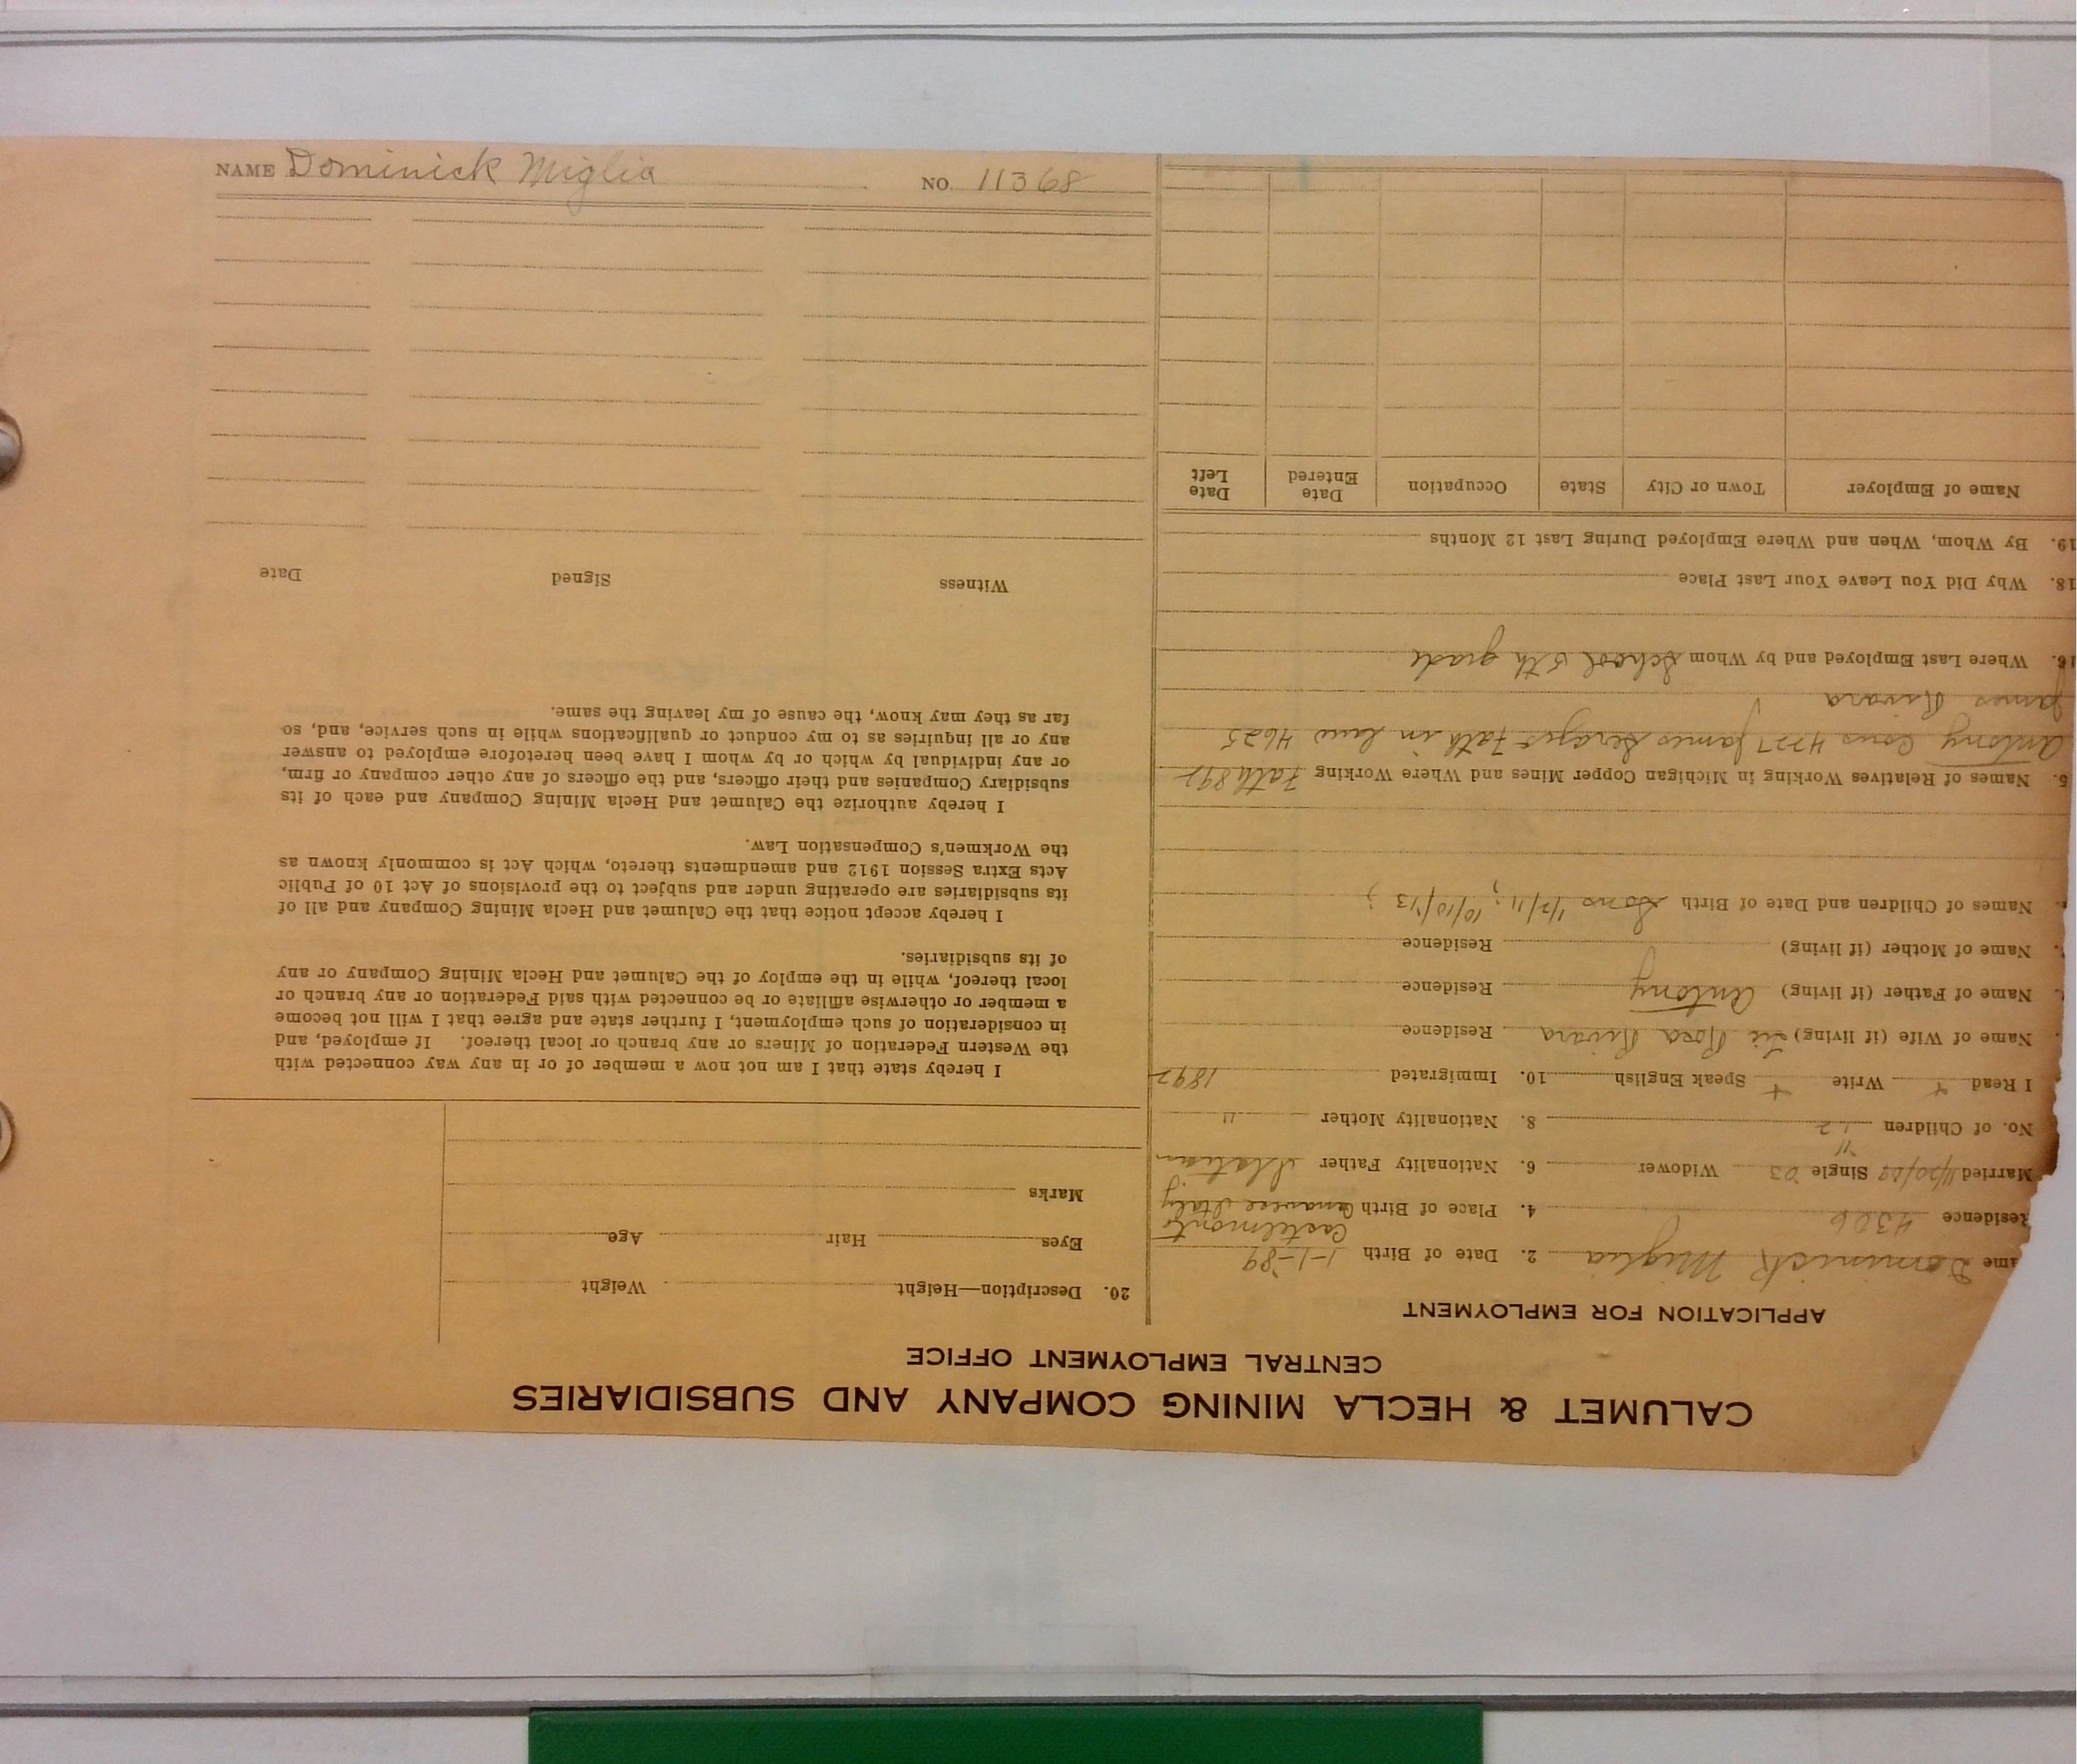 NAME Dominick Miglia NO. 11368
CALUMET & HECLA MINING COMPANY AND SUBSIDIARIES
CENTRAL EMPLOYMENT OFFICE
APPLICATION FOR EMPLOYMENT
ame Dominick Miglia 2. Date of Birth 1-1-89
Residence 4306 4. Place of Birth Castelmonto Canavese Italy
Married 11/20/09 Single Widower 6. Nationality Father Italian
No. of Children 8. Nationality Mother "
I Read + Write + Speak English 10. Immigrated 1897
Name of Wife (if living) Rosa Rivara Residence
Name of Father (if living) Antony Residence
Name of Mother (if living) Residence
Names of Children and Date of Birth Sons 10/10/13;
5. Names of Relatives Working in Michigan Copper Mines and Where Working Fath 897
Antony Cous 4727 James Fath in law 4625
James Rivara
16. Where Last Employed and by Whom School 5th grade
18. Why Did You Leave Your Last Place
19. By Whom, When and Where Employed During Last 12 Months
Name of Employer Town or City State Occupation Date Entered Date Left
20. Description—Height Weight
Eyes Hair Age
Marks
I hereby state that I am not now a member of or in any way connected with
the Western Federation of Miners or any branch or local thereof. If employed, and
in consideration of such employment, I further state and agree that I will not become
a member or otherwise affiliate or be connected with said Federation or any branch or
local thereof, while in the employ of the Calumet and Hecla Mining Company or any
of its subsidiaries.
I hereby accept notice that the Calumet and Hecla Mining Company and all of
its subsidiaries are operating under and subject to the provisions of Act 10 of Public
Acts Extra Session 1912 and amendments thereto, which Act is commonly known as
the Workmen's Compensation Law.
I hereby authorize the Calumet and Hecla Mining Company and each of its
subsidiary Companies and their officers, and the officers of any other company or firm,
or any individual by which or by whom I have been heretofore employed to answer
any or all inquiries as to my conduct or qualifications while in such service, and, so
far as they may know, the cause of my leaving the same.
Witness Signed Date